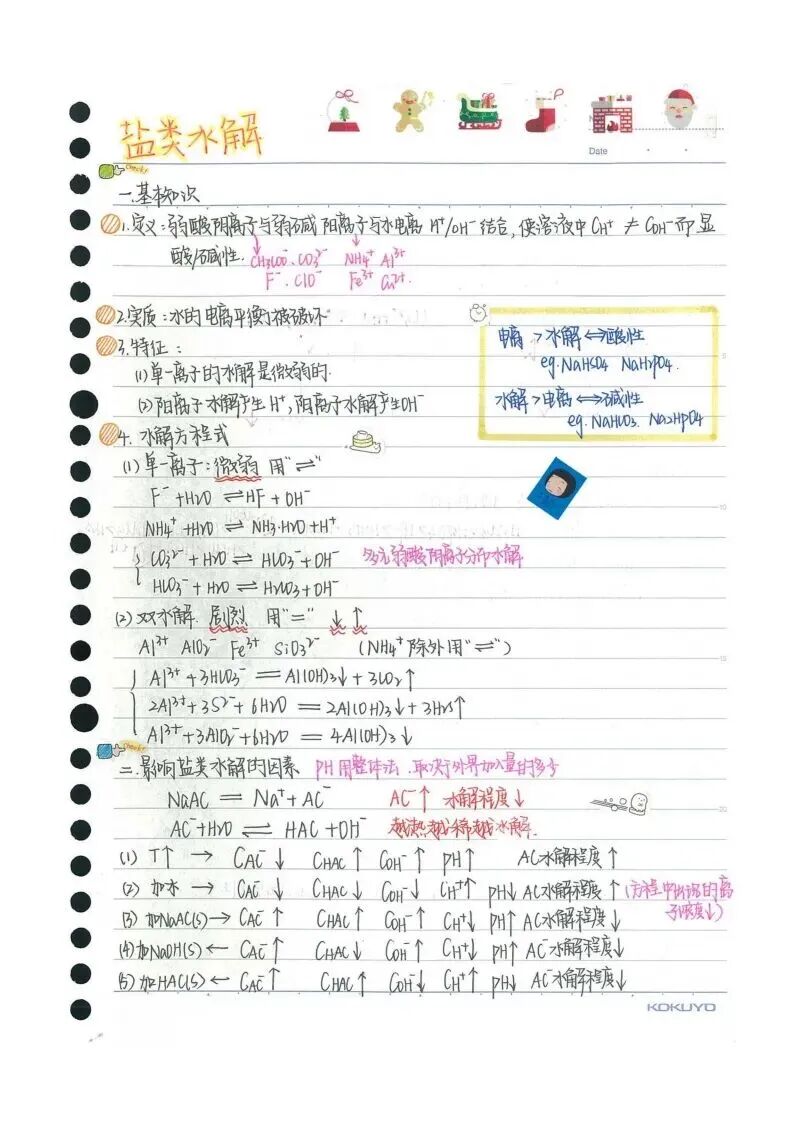 盐类水解
Date
Check
一.基本知识
1.定义:弱酸阴离子与弱碱阳离子与水电离 H⁺/OH⁻ 结合,使溶液中CH⁺ ≠ COH⁻而显
酸/碱性.
CH3COO⁻、CO3²⁻ NH4⁺ Al³⁺
F⁻、ClO⁻ Fe³⁺ Cu²⁺
2.实质:水的电离平衡被破坏
电离 > 水解 ⇔ 酸性
eg.NaHSO4 NaH2PO4.
水解 > 电离 ⇔ 碱性
eg.NaHCO3. Na2HPO4
3.特征:
(1)单一离子的水解是微弱的.
(2)阳离子水解产生H⁺,阳离子水解产生OH⁻
4. 水解方程式
(1)单一离子:微弱 用"⇌"
F⁻+H2O ⇌HF+OH⁻
NH4⁺+H2O ⇌ NH3·H2O+H⁺
CO3²⁻+H2O ⇌ HCO3⁻+OH⁻ 多元弱酸阴离子分布水解
HCO3⁻+H2O ⇌ H2CO3+OH⁻
(2)双水解. 剧烈 用"=" ↓ ↑
Al³⁺ AlO2⁻ Fe³⁺ SiO3²⁻ (NH4⁺除外用"⇌")
Al³⁺+3HCO3⁻ = Al(OH)3↓+3CO2↑
2Al³⁺+3S²⁻+6H2O = 2Al(OH)3↓+3H2S↑
Al³⁺+3AlO2⁻+6H2O = 4Al(OH)3↓
Check
二.影响盐类水解的因素 PH用整体法.取决于外界加入量的多少
NaAC = Na⁺+AC⁻ AC⁻↑ 水解程度↓
AC⁻+H2O ⇌ HAC+OH⁻ 越热越稀越水解.
(1) T↑ → CAC⁻↓ CHAC↑ COH⁻↑ pH↑ AC水解程度↑
(2) 加水 → CAC⁻↓ CHAC↓ COH⁻↓ CH⁺↑ pH↓ AC水解程度↑(方程中出现的离
子浓度↓)
(3) 加NaAC(s)→ CAC⁻↑ CHAC↑ COH⁻↑ CH⁺↓ pH↑ AC水解程度↓
(4)加NaOH(s)← CAC⁻↑ CHAC↓ COH⁻↑ CH⁺↓ pH↑ AC⁻水解程度↓
(5)加HAC(s) ← CAC⁻↑ CHAC↑ COH⁻↓ CH⁺↑ pH↓ AC⁻水解程度↓
KOKUYO